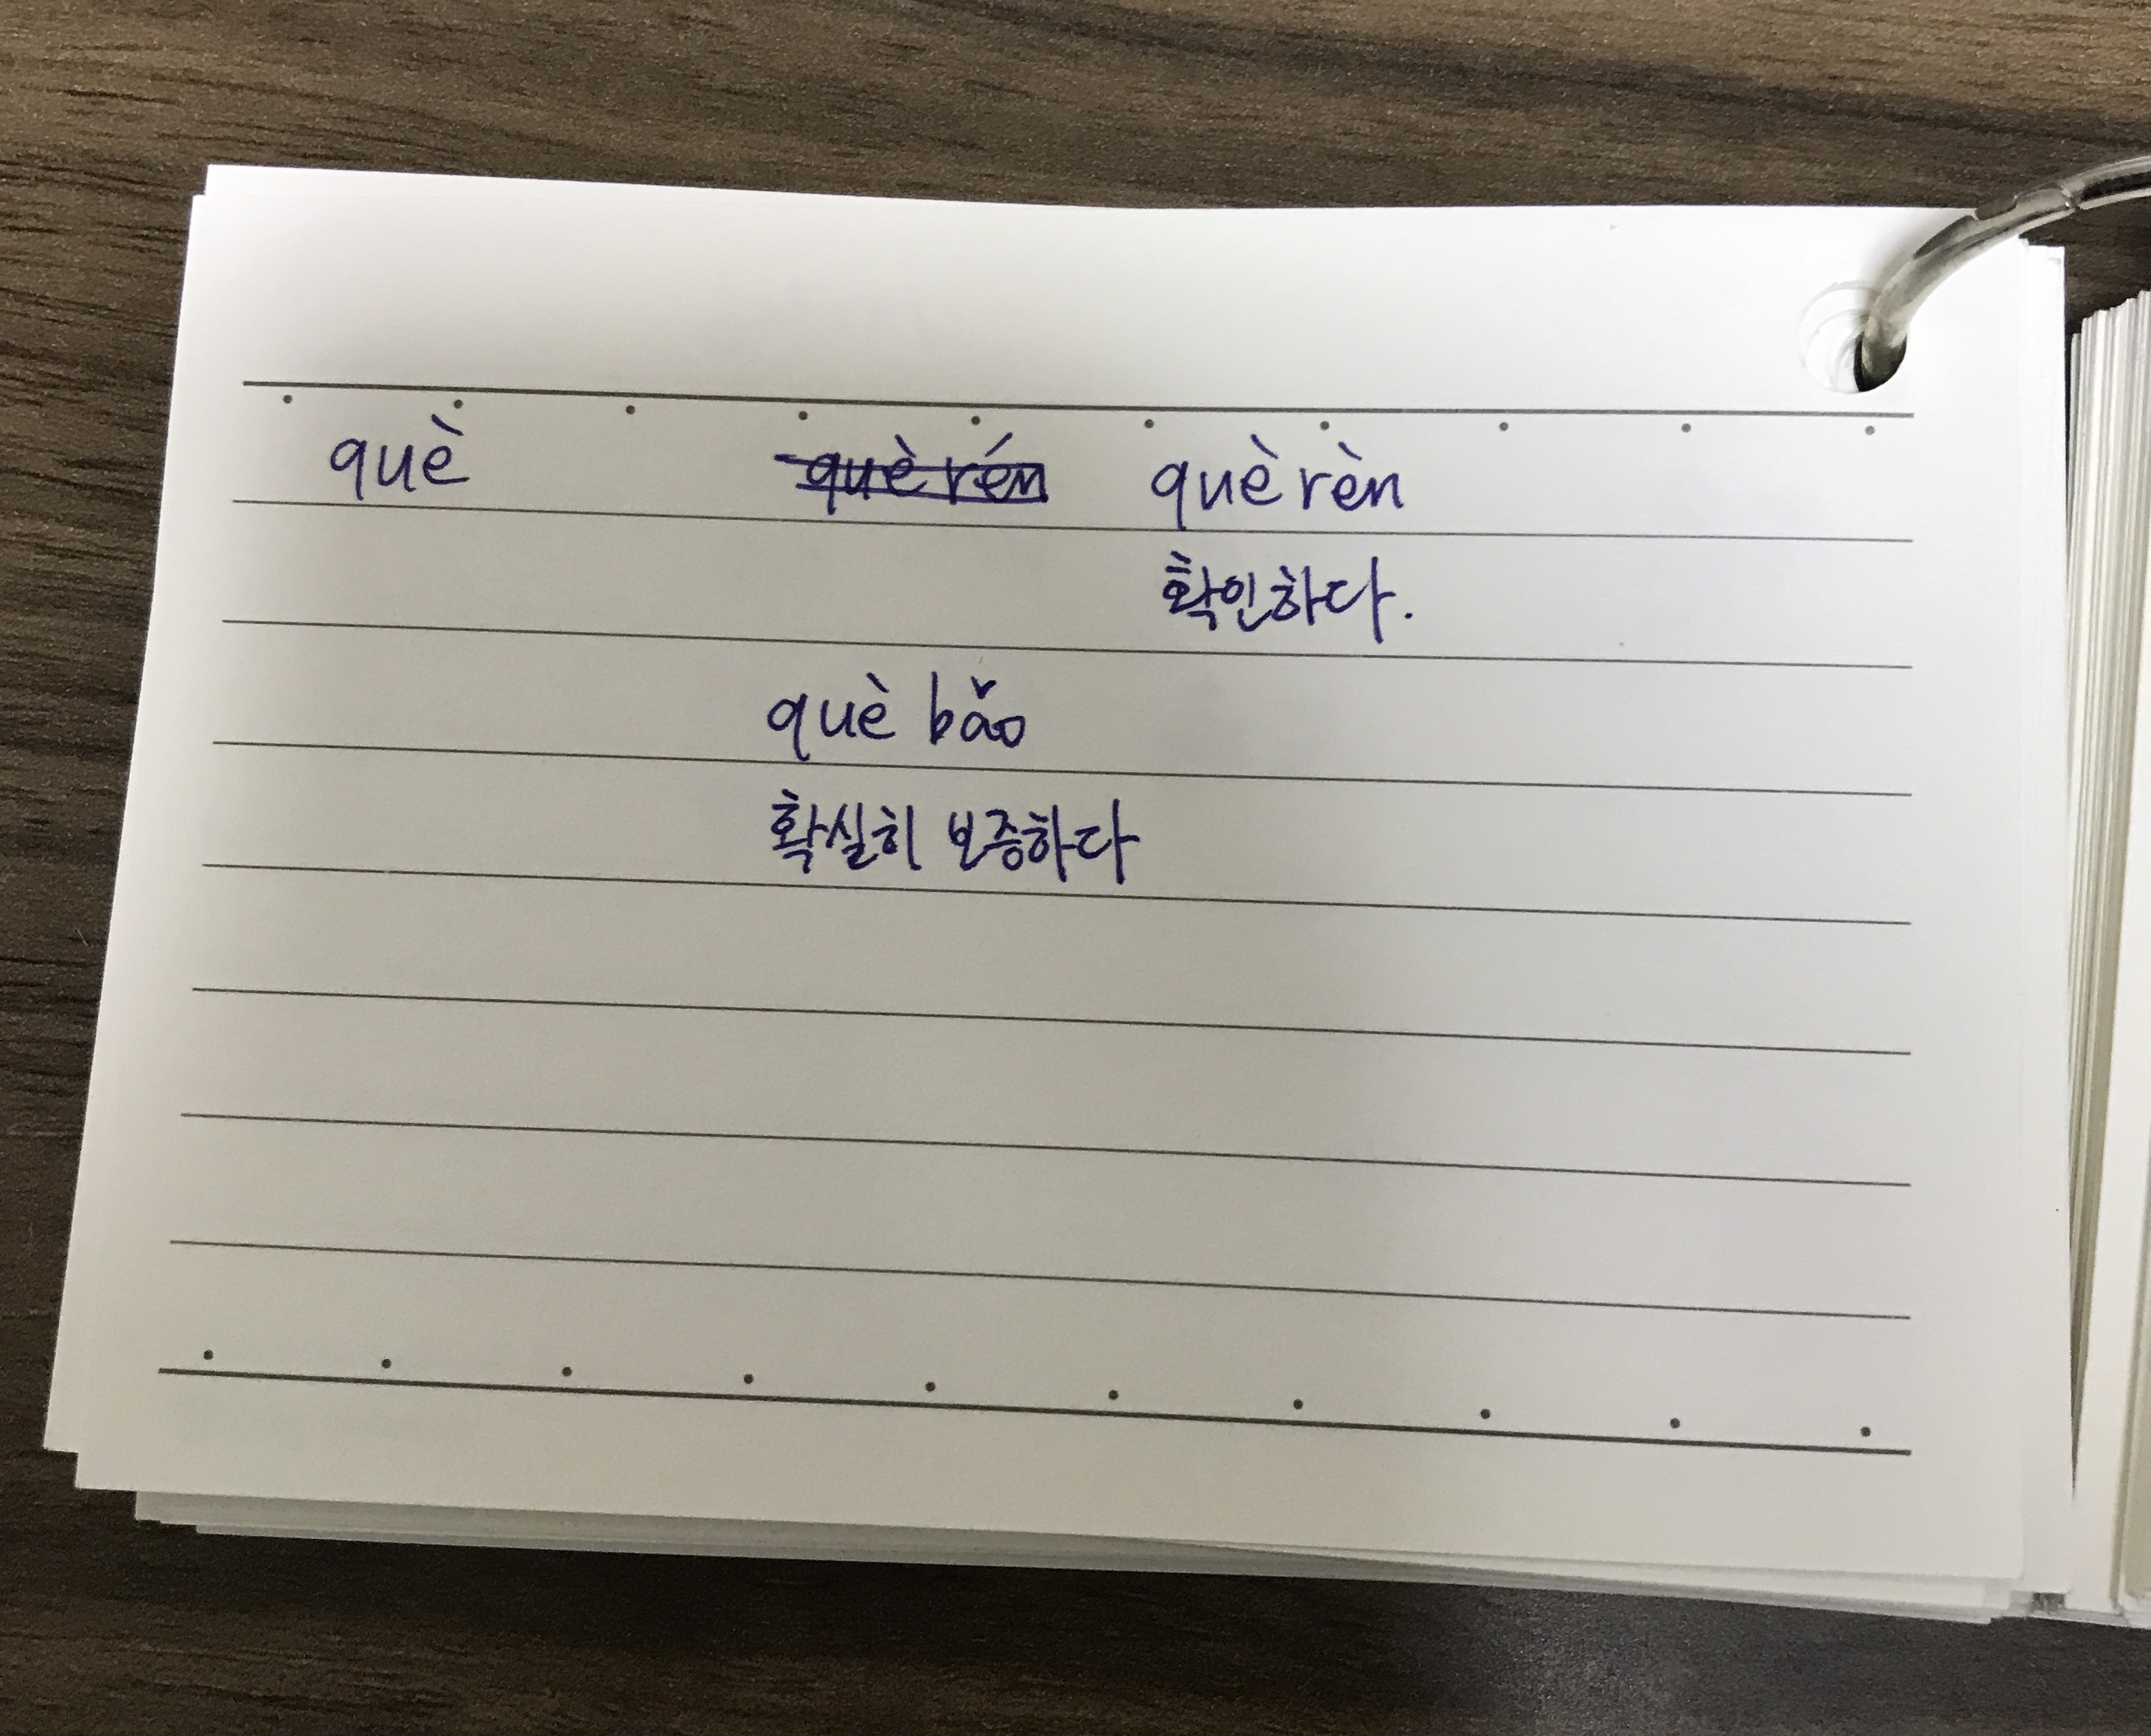 què què rén què rèn
확인하다.
què bǎo
확실히 보증하다